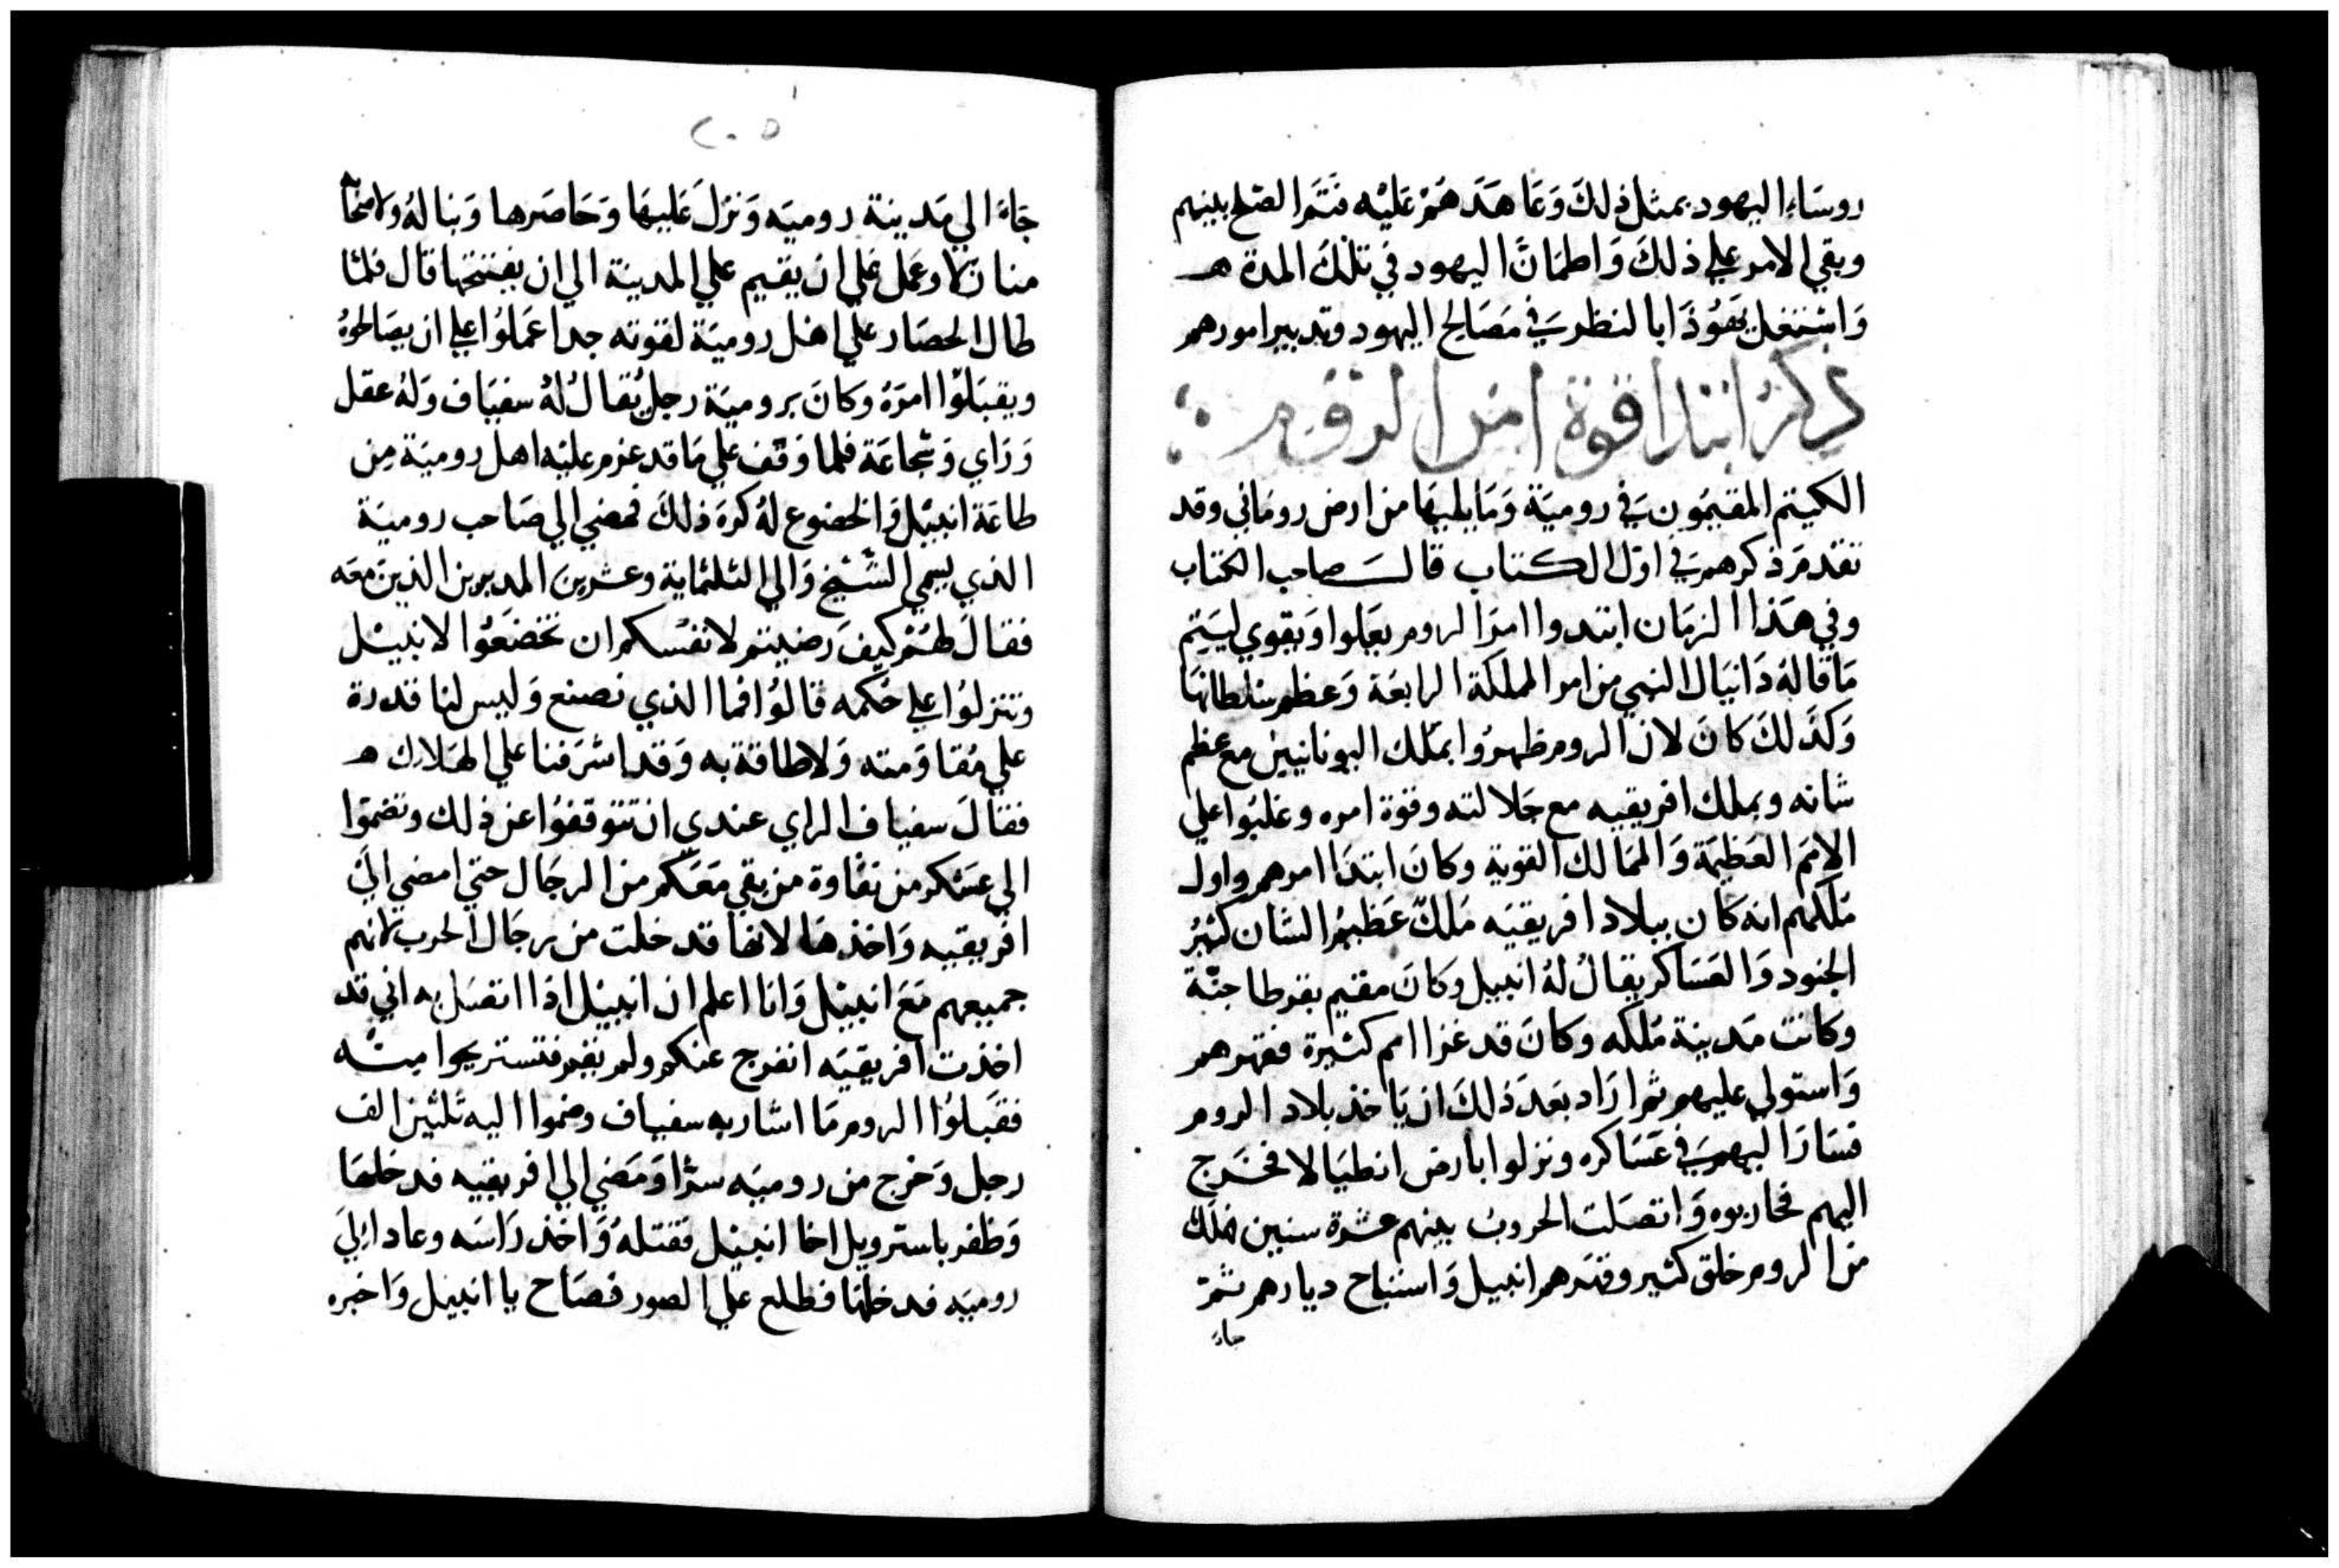 روسَاءِ اليهود بمثل ذلكَ وَعَاهَدَهُمْ عَلَيْه فَتَمَّ الصّلح بينهم
وبقي الامر علي ذلكَ وَاطمَانَّ اليهود في تلكَ المدة هـ
وَاشتغل يَهَوُذَا بالنظر في مَصَالح اليهود وتدبير امورهم
ذكر ابتدا قوة امر الروم
الكيتم المقيمُون في روميَة وَمَا يليهَا من ارض روماني وقد
تقدم ذكرهم في اول الكتاب قال صاحب الكتاب
وفي هَذا الزمَان ابتدوا امرَا الروم يعَلوا وَيقوي ليَتم
مَا قالهُ دَانيَال النبي من امر المملكة الرابعَة وَعظم سُلطانهَا
وَكذَلكَ كانَ لان الروم ظهرُوا بملك اليونانيين مع عظم
شانه وبملك افريقيه مع جَلالته وقوة امره وغلبُوا علي
الامَم العَظيمَة وَالممَالك القوية وكانَ ابتدَا امرهم واول
مُلكهم انه كان ببلاد افريقيَه مَلكٌ عَظيمُ الشان كثيرُ
الجنود وَالعَسَاكر يقالُ لهُ انيبيل وكانَ مقيم بقرطاجنّة
وكانت مَدينة مُلكه وكانَ قد غزا امم كثيرة فقهرهم
وَاستولي عليهم ثم ارَاد بعَدَ ذلكَ ان يَاخذ بلاد الروم
فسَارَ اليهم في عَسَاكره ونزلوا بارض انطيَالا فخَرج
اليهم فحاربوه وَاتصَلت الحروب بينهم عشرة سنين فهلكَ
من الروم خلق كثير وقهَرهم انيبيل وَاستباح ديارهم ثمّ
جاءَ
٢٠٥
جَاءَ الي مَدينة روميَه وَنزلَ عَليهَا وَحَاصَرها وَبنا لهُ ولاصحَابه
منازلا وعمل علي ان يقيم علي المدينة الي ان يفتتحها قال فلمّا
طال الحصَار علي اهل روميَة لقوته جدا عمَلوُا علي ان يصَالحوهُ
ويقبَلوُا امرَهُ وكانَ بروميَة رجل يُقالُ لهُ سفيَاف وَلهُ عقل
وَرَاي وَشجاعَة فلما وَقف علي مَا قد عزم عليْه اهل روميَة مِن
طاعَة انيبيل وَالخضوع لهُ كرهَ ذلكَ فمضي الي صَاحب روميَة
الذي يسمي الشّيْخ وَالي الثلثماية وعشرين المدبرين الذين معَه
فقالَ لهُم كيفَ رضيتم لانفسكم ان تخضَعوُا لانيبيل
وتنزلوُا علي حُكمه قالوُا فما الذي نصنع وَليس لنا قدرة
علي مُقاوَمته وَلا طاقة به وَقد اشرَفنا علي الهَلاك هـ
فقالَ سفياف الراي عندي ان تتوقفوُا عن ذلك وتضمّوا
الي عسَكر من نقاوة من بقي معَكم من الرجَال حتي امضي الي
افريقيه وَاخذهَا لانها قد خلت من رجَال الحرب لانهم
جميعهم مَعَ انيبيل وَانا اعلم ان انيبيل اذَا اتصَل به اني قد
اخذت افريقيَه انفرج عنكم ولم يقم فتستريحوا منه
فقبَلوُا الروم مَا اشار به سفياف وضموا اليه ثلثين الف
رجل وَخرج من روميَه سرًا وَمَضي الي افريقيه فدخلهَا
وَظفر باستروبيل اخا انيبيل فقتلهُ وَاخذ رَاسَه وعاد الي
روميَه فدخلهَا فطلع علي الصور فصَاح يا انيبيل وَاخبره